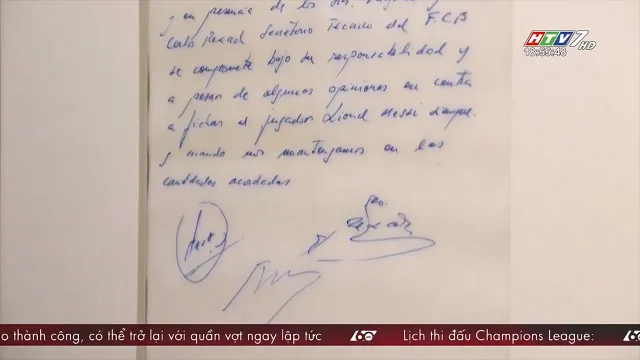 HTV7 HD
18:55:48
y en presencia de los
Carlos Rexach Secretario Técnico del F.C.B
se compromete bajo su responsabilidad y
a pesar de algunas opiniones en contra
a fichar al jugador Lionel Messi siempre
y cuando nos mantengamos en las
cantidades acordadas
o thành công, có thể trở lại với quần vợt ngay lập tức
60
Lịch thi đấu Champions League: